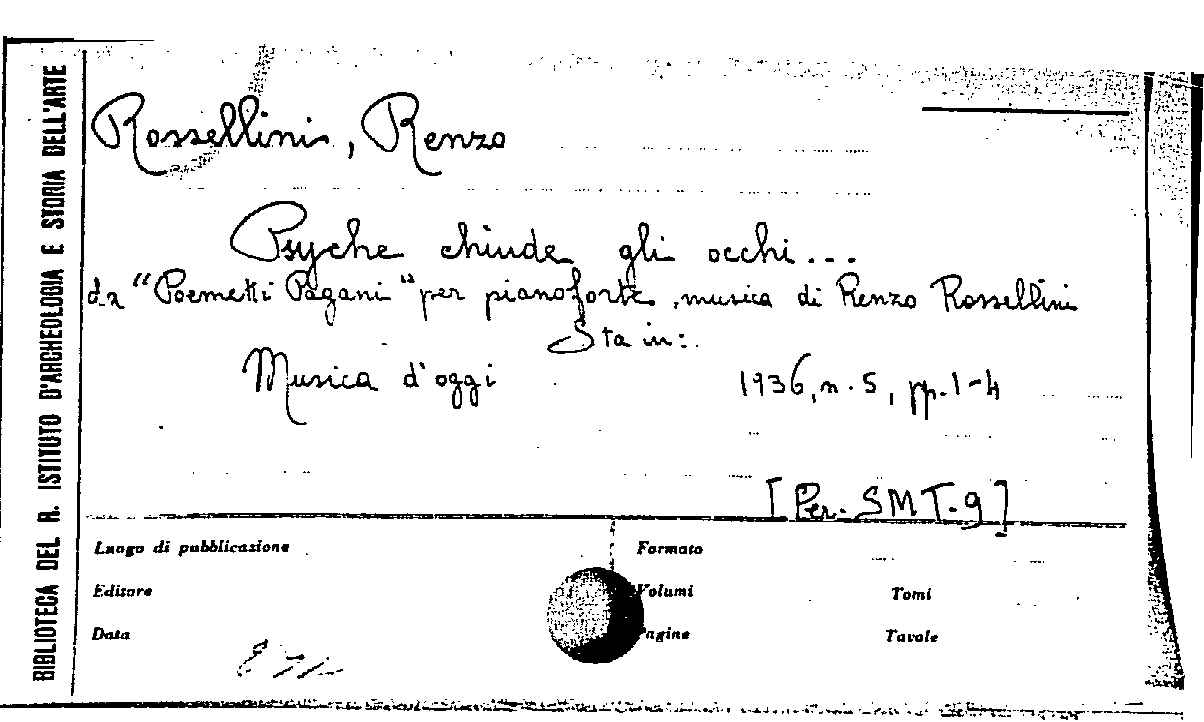 BIBLIOTECA DEL R. ISTITUTO D'ARCHEOLOGIA E STORIA DELL'ARTE
Rossellini, Renzo
Psyche chiude gli occhi...
da "Poemetti Pagani" per pianoforte, musica di Renzo Rossellini
Sta in:
Musica d'oggi 1936, n. 5, pp. 1-4
[Per. SMT-9]
Luogo di pubblicazione Formato
Editore Volumi Tomi
Data Pagine Tavole